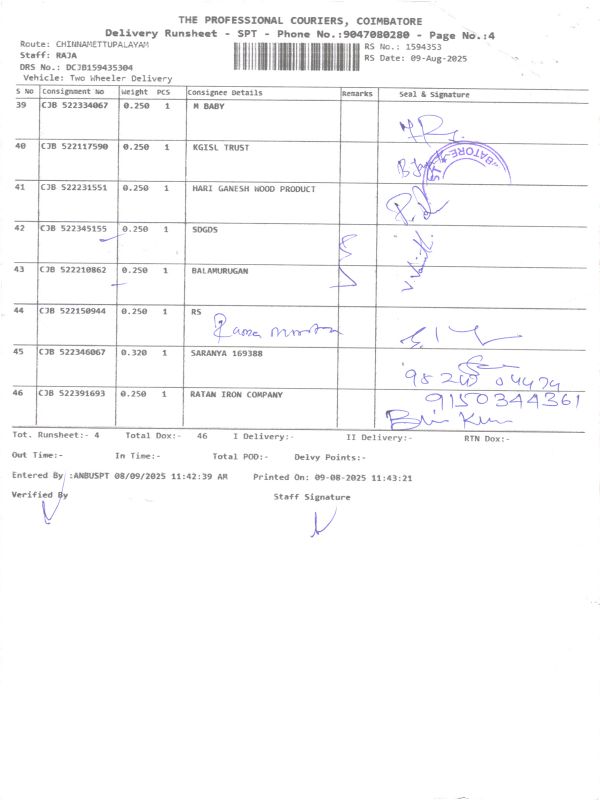 THE PROFESSIONAL COURIERS, COIMBATORE
Delivery Runsheet - SPT - Phone No.:9047080280 - Page No.:4
Route: CHINNAMETTUPALAYAM
RS No.: 1594353
Staff: RAJA
RS Date: 09-Aug-2025
DRS No.: DCJB159435304
Vehicle: Two Wheeler Delivery
S No Consignment No Weight PCS Consignee Details Remarks Seal & Signature
39 CJB 522334067 0.250 1 M BABY
40 CJB 522117590 0.250 1 KGISL TRUST
41 CJB 522231551 0.250 1 HARI GANESH WOOD PRODUCT
42 CJB 522345155 0.250 1 SDGDS
43 CJB 522210862 0.250 1 BALAMURUGAN
44 CJB 522150944 0.250 1 RS
45 CJB 522346067 0.320 1 SARANYA 169388
46 CJB 522391693 0.250 1 RATAN IRON COMPANY
9150344361
Tot. Runsheet:- 4 Total Dox:- 46 I Delivery:- II Delivery:- RTN Dox:-
Out Time:- In Time:- Total POD:- Delvy Points:-
Entered By :ANBUSPT 08/09/2025 11:42:39 AM Printed On: 09-08-2025 11:43:21
Verified By Staff Signature